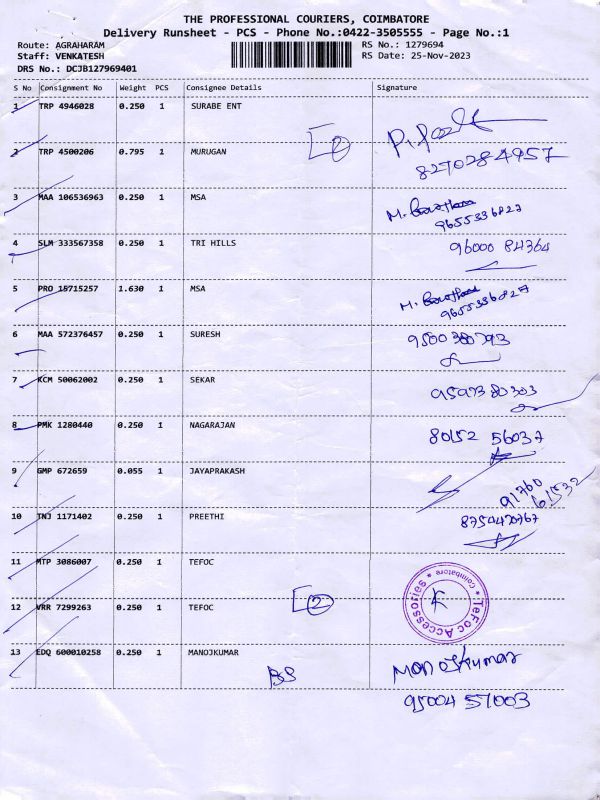 THE PROFESSIONAL COURIERS, COIMBATORE
Delivery Runsheet - PCS - Phone No.:0422-3505555 - Page No.:1
Route: AGRAHARAM RS No.: 1279694
Staff: VENKATESH RS Date: 25-Nov-2023
DRS No.: DCJB127969401
S No Consignment No Weight PCS Consignee Details Signature
1 TRP 4946028 0.250 1 SURABE ENT
2 TRP 4500206 0.795 1 MURUGAN 8270284957
2
3 MAA 106536963 0.250 1 MSA
9655336827
4 SLM 333567358 0.250 1 TRI HILLS 96000 84364
5 PRO 15715257 1.630 1 MSA
9655336827
6 MAA 572376457 0.250 1 SURESH 9500380793
7 KCM 50062002 0.250 1 SEKAR 9597380303
8 PMK 1280440 0.250 1 NAGARAJAN 80152 56037
9 GMP 672659 0.055 1 JAYAPRAKASH 91760
61532
10 TNJ 1171402 0.250 1 PREETHI 8754420767
11 MTP 3086007 0.250 1 TEFOC
Coimbatore
TeFoc Accessories
12 VRR 7299263 0.250 1 TEFOC 2
13 EDQ 600010258 0.250 1 MANOJKUMAR
BS Manojkumar
95004 57003